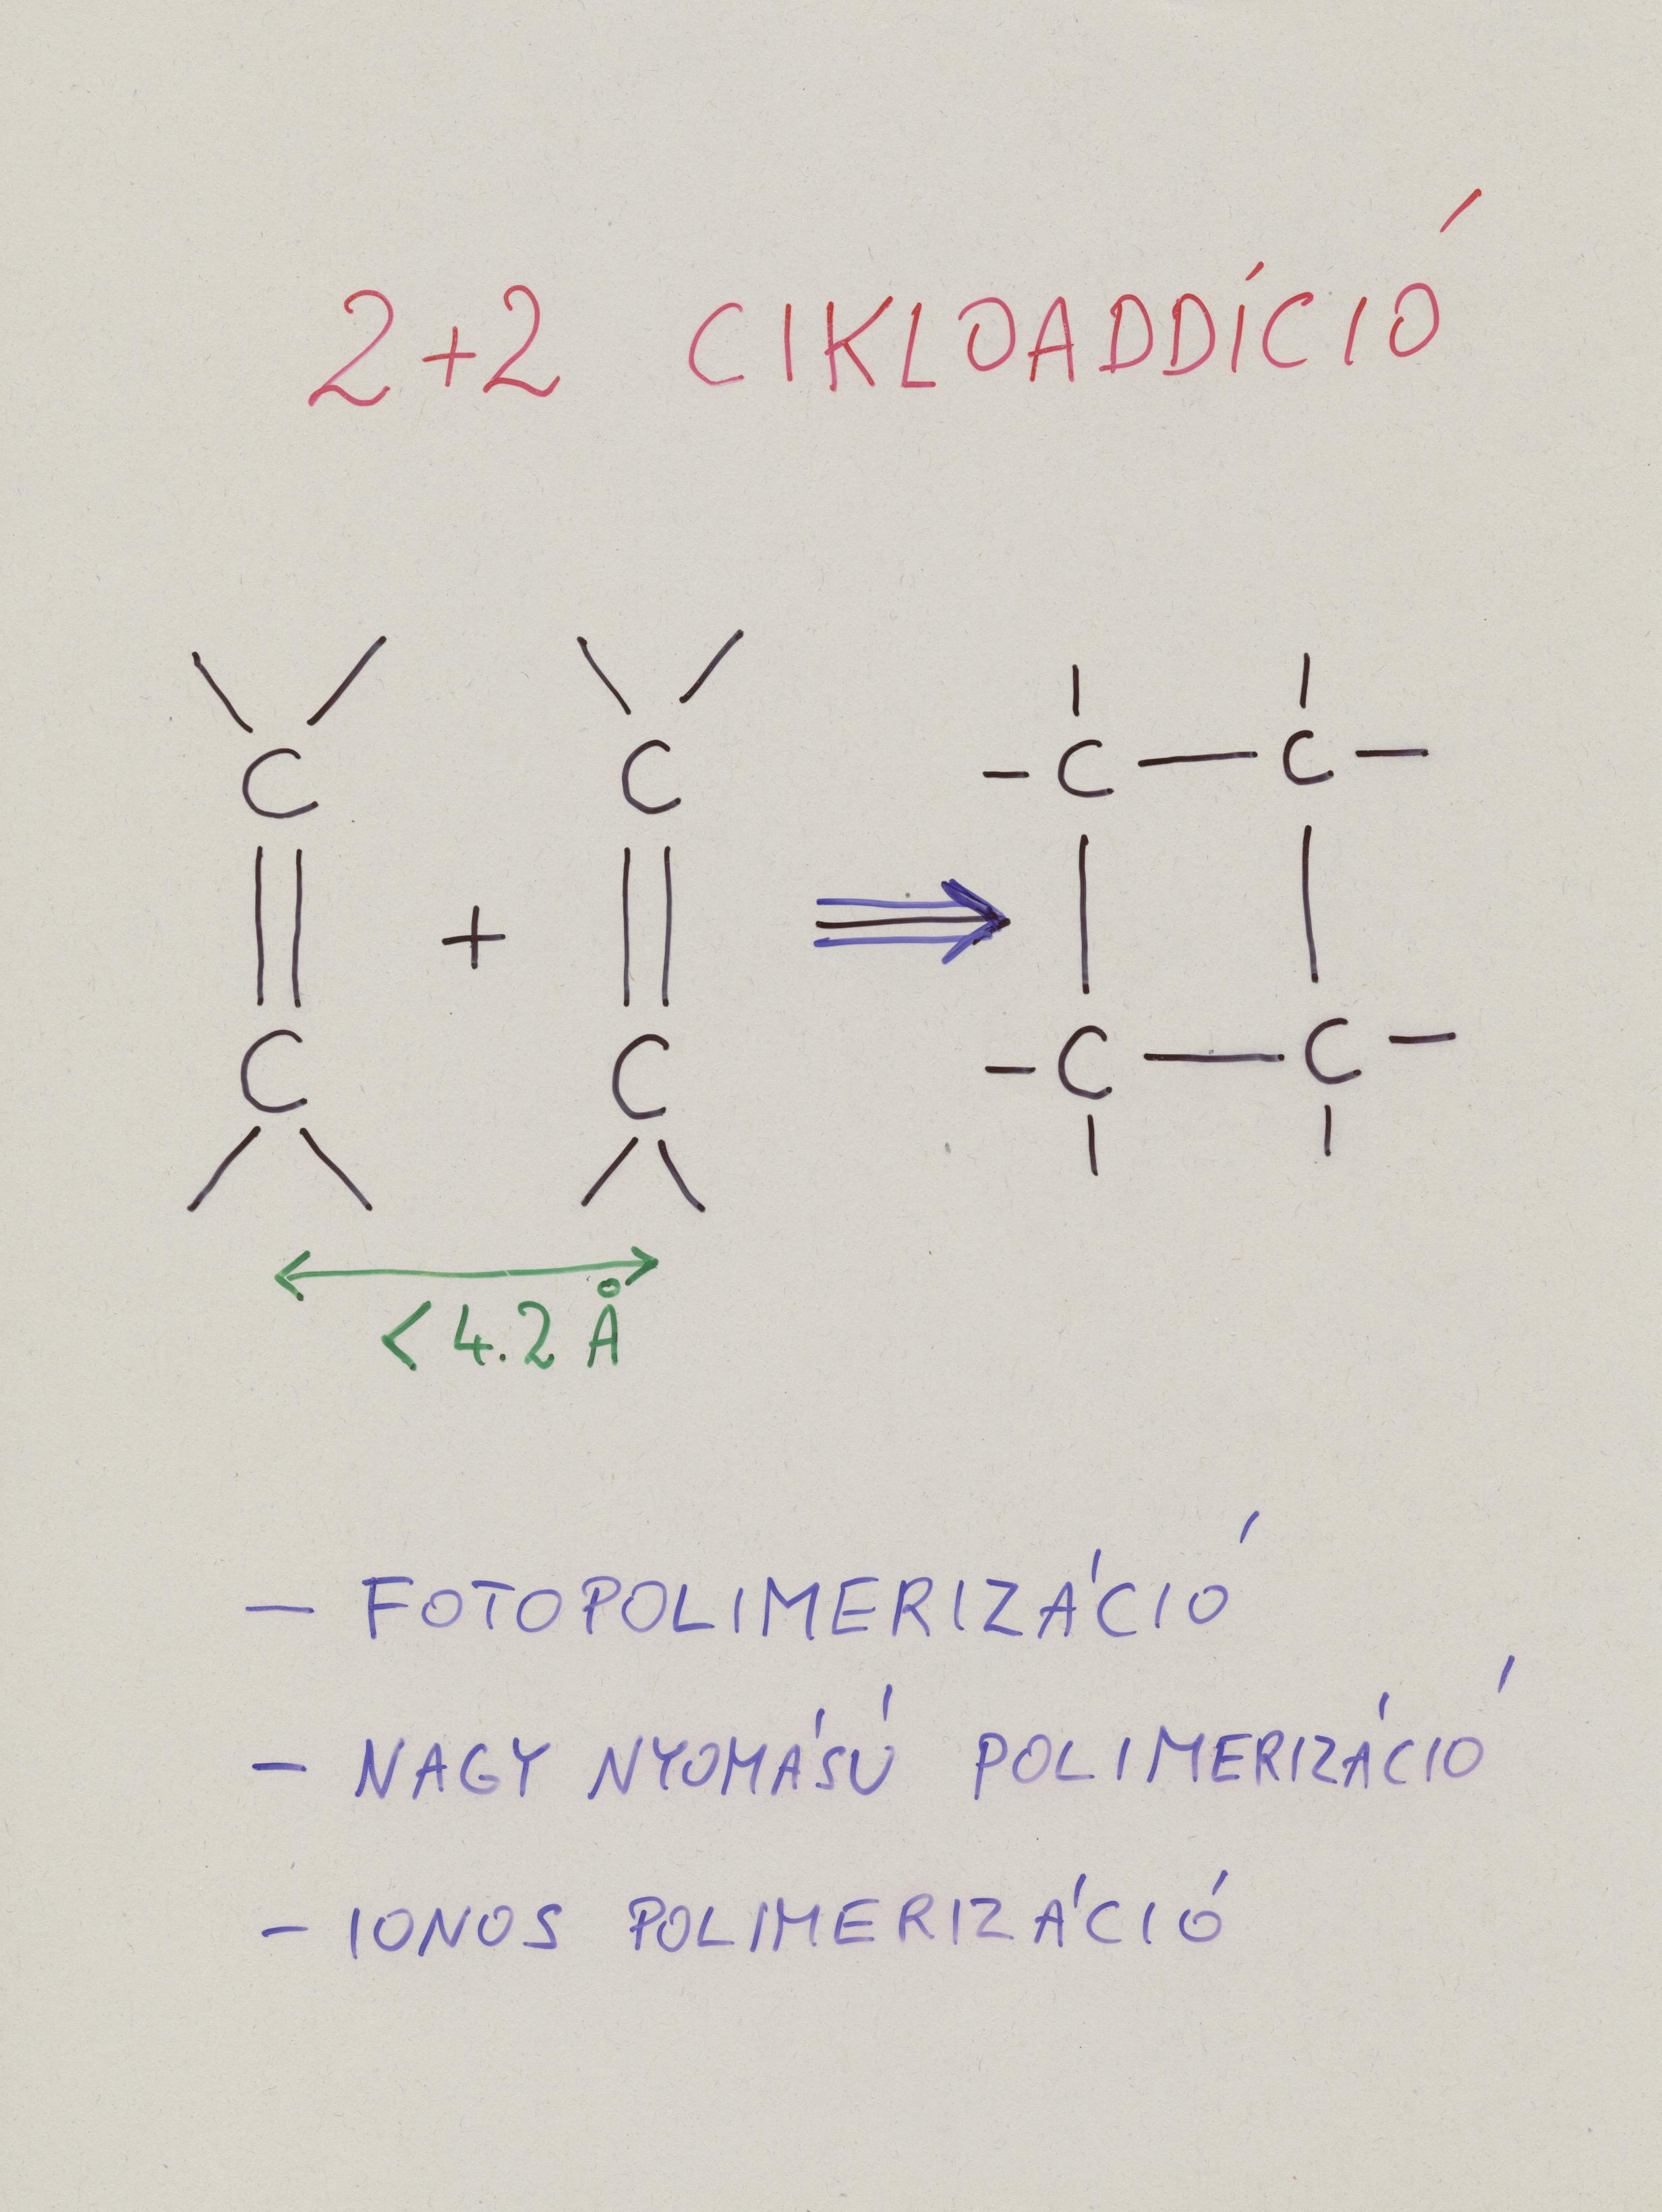 2+2 CIKLOADDÍCIÓ
C C C C
+
C C C C
<4.2 Å
– FOTOPOLIMERIZÁCIÓ
– NAGY NYOMÁSÚ POLIMERIZÁCIÓ
– IONOS POLIMERIZÁCIÓ